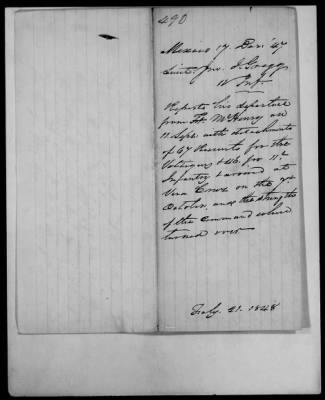 490
Mexico 17 Dec. 47
Lieut. Jno. I. Gregg
11 Inf.
Reports his departure
from Ft. McHenry on
11 Sept. with detachments
of 67 Recruits for the
Voltigeurs & 46 for 11th
Infantry & arrival at
Vera Cruz on the 7th
October, and the
of the command where
turned over
Feby. 21. 1848